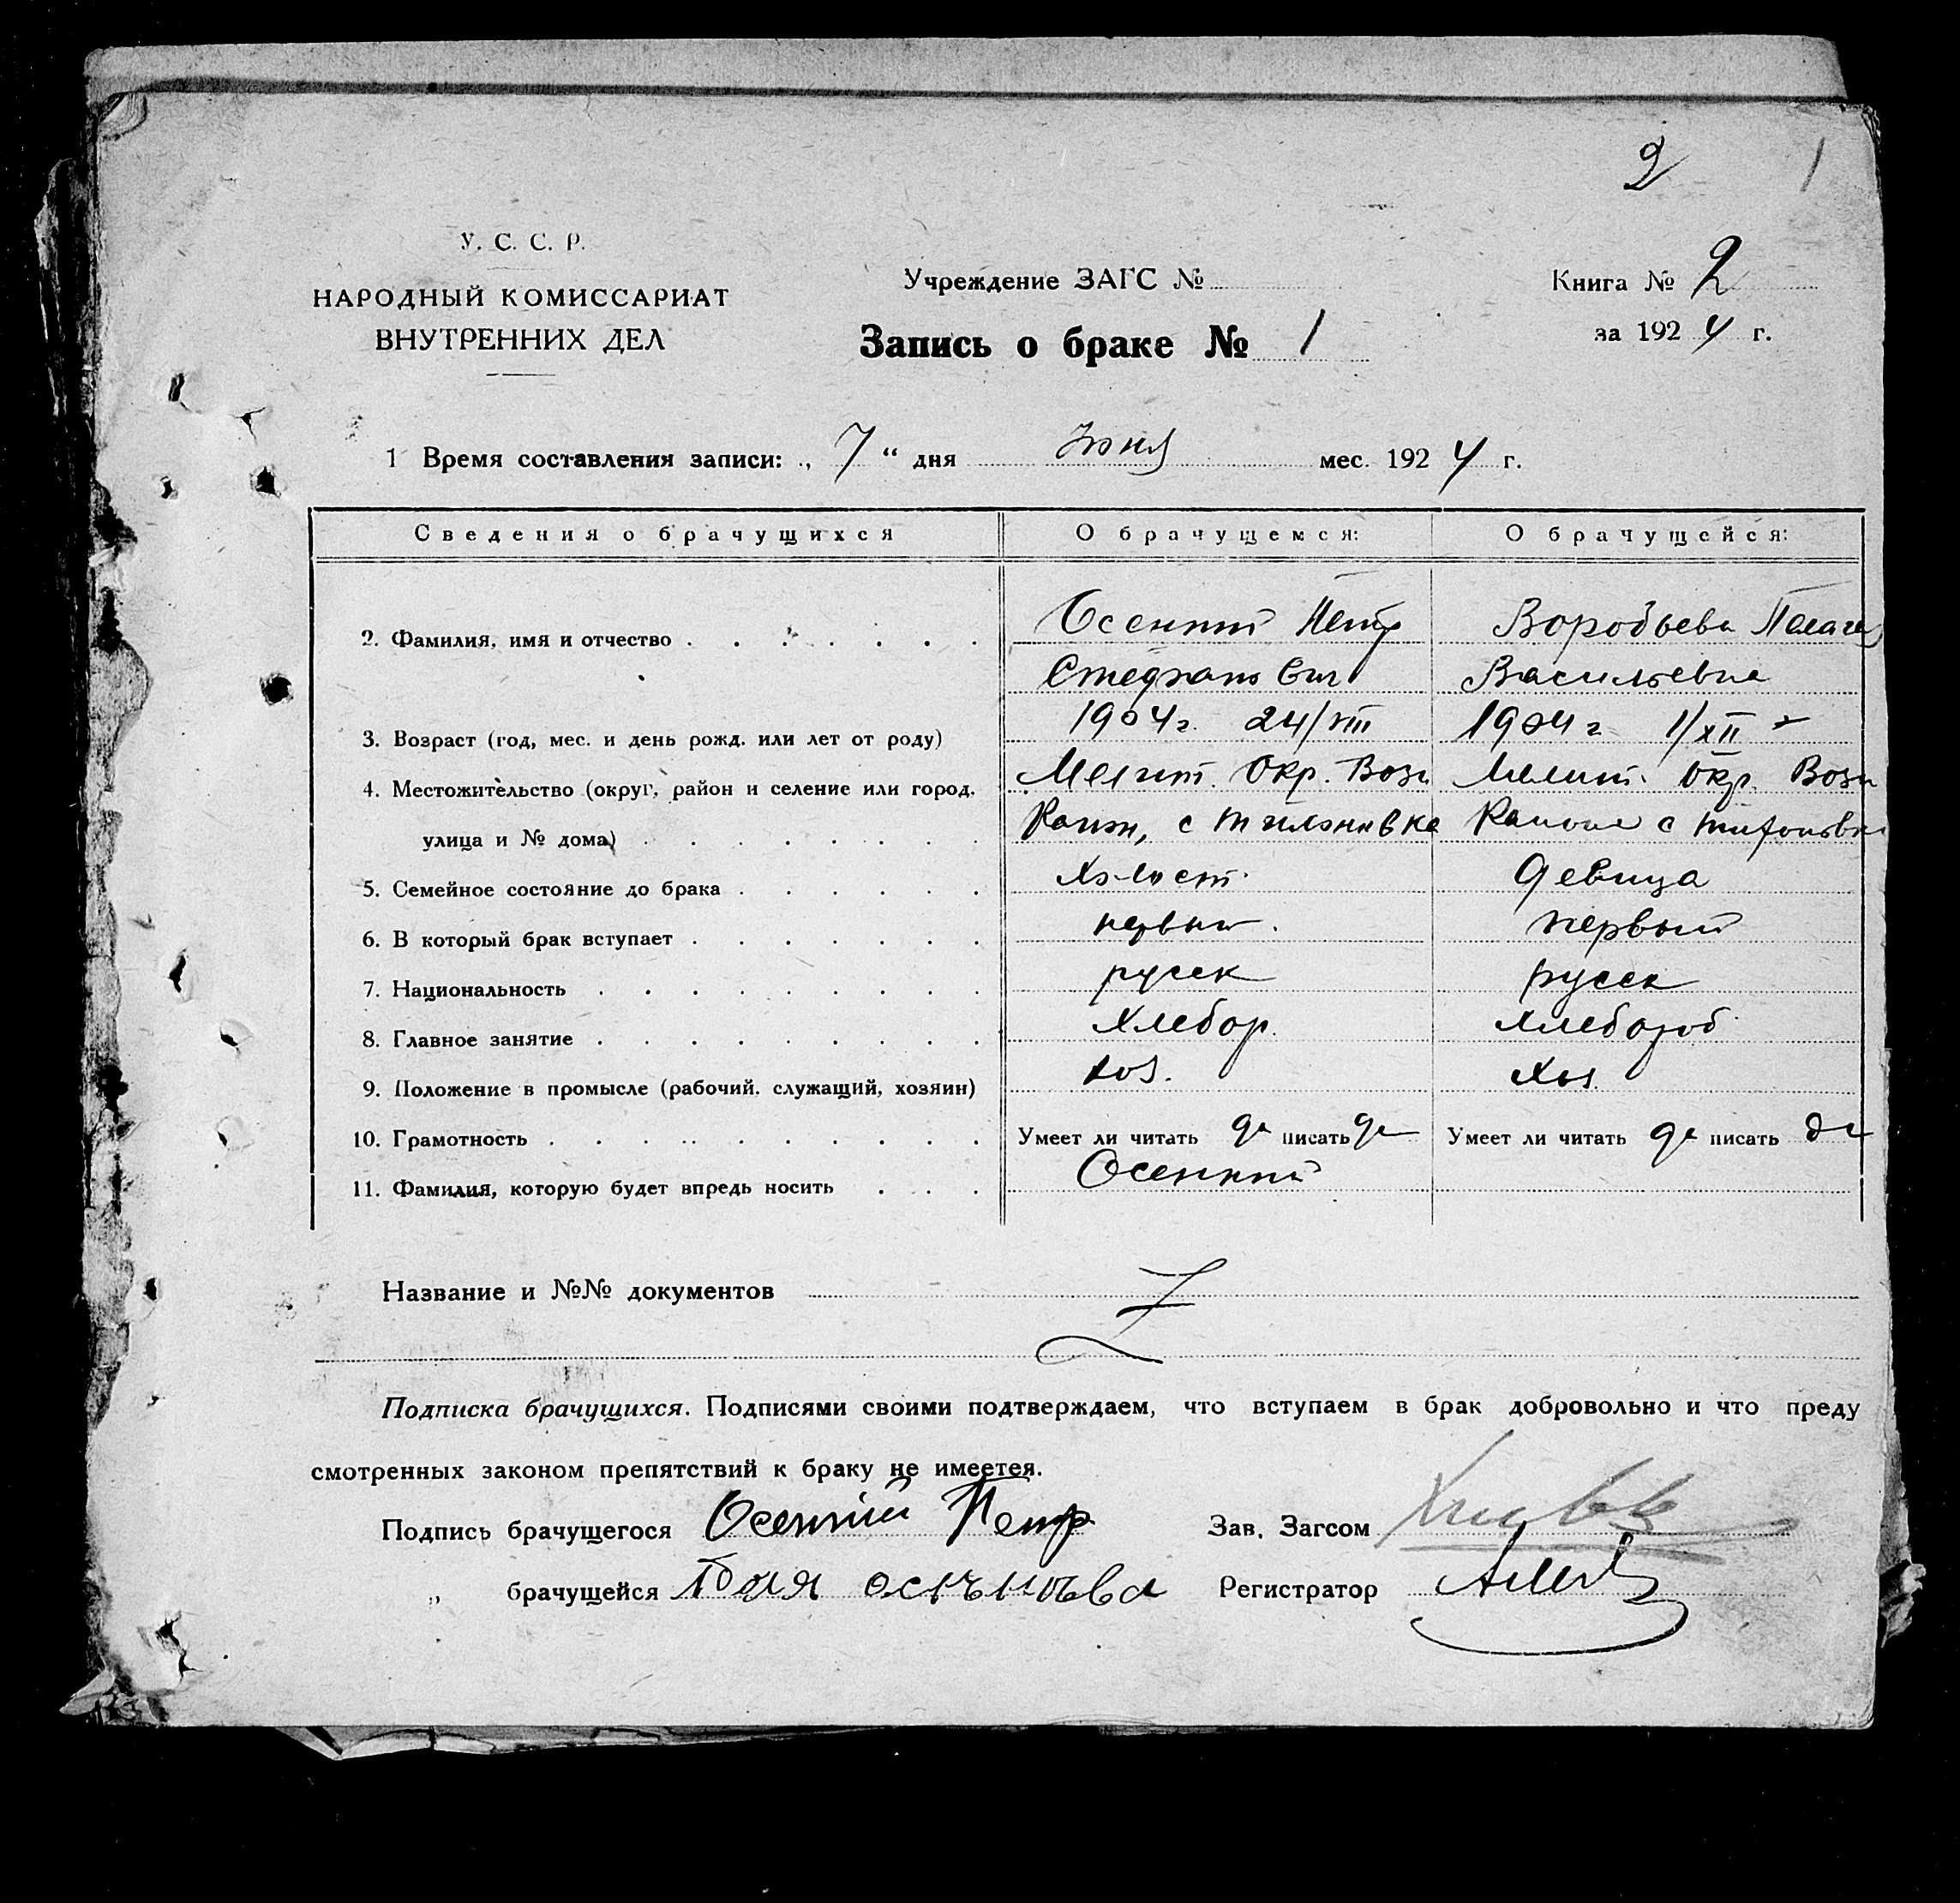 2 1
У. С. С. Р.
НАРОДНЫЙ КОМИССАРИАТ
ВНУТРЕННИХ ДЕЛ
Учреждение ЗАГС №
Запись о браке № 1
Книга № 2
за 1924 г.
1 Время составления записи: „ 7 “ дня Июня мес. 1924 г.
Сведения о брачущихся О брачущемся: О брачущейся:
2. Фамилия, имя и отчество Осенний Петр Воробьева Пелагея
Стефанович Васильевна
3. Возраст (год, мес. и день рожд. или лет от роду) 1904 г. 24/VIII 1904 г 1/XII
4. Местожительство (округ, район и селение или город, Мелит. Окр. Возн Мелит. Окр. Возн
улица и № дома) с с
5. Семейное состояние до брака Холост. девица
6. В который брак вступает первый. первый
7. Национальность русск русск
8. Главное занятие Хлебор. Хлебороб
9. Положение в промысле (рабочий, служащий, хозяин) хоз. Хоз
10. Грамотность Умеет ли читать да писать да Умеет ли читать да писать да
11. Фамилия, которую будет впредь носить Осенний
Название и №№ документов
Подписка брачущихся. Подписями своими подтверждаем, что вступаем в брак добровольно и что преду
смотренных законом препятствий к браку не имеетея.
Подпись брачущегося Осенний Петр Зав. Загсом
„ брачущейся Регистратор